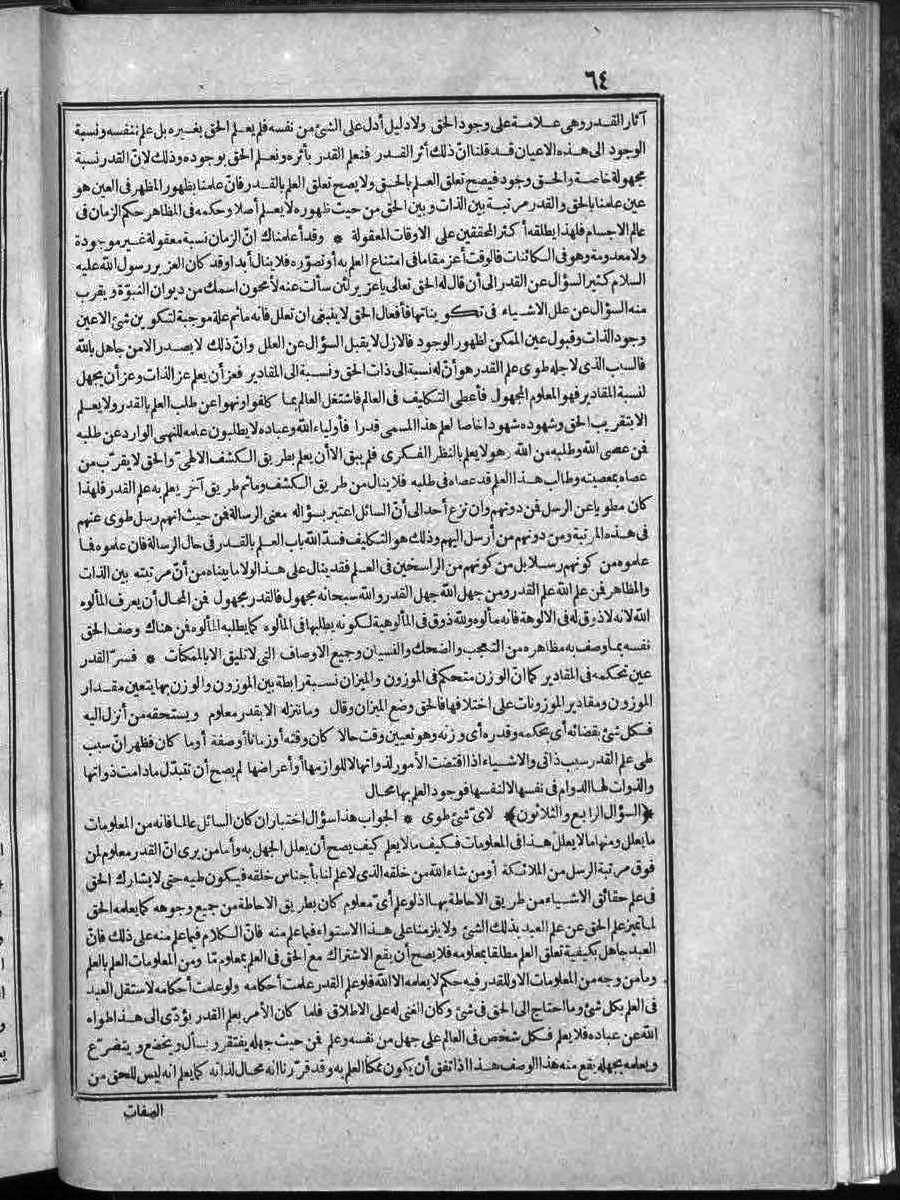 ٦٤
آثار القدر وهى علامة على وجود الحق ولا دليل أدل على الشئ من نفسه فلم يعلم الحق بغيره بل علم بنفسه ونسبة
الوجود الى هذه الاعيان قد قلنا انّ ذلك أثر القدر فنعلم القدر بأثره ونعلم الحق بوجوده وذلك لانّ القدر نسبة
مجهولة خاصة والحق وجود فيصح تعلق العلم بالحق ولا يصح تعلق العلم بالقدر فانّ علمنا بظهور المظهر فى العين هو
عين علمنا بالحق والقدر مرتبة بين الذات وبين الحق من حيث ظهوره لا يعلم أصلا وحكمه فى المظاهر حكم الزمان فى
عالم الاجسام فلهذا يطلقه أكثر المحققين على الاوقات المعقولة * وقد أعلمناك انّ الزمان نسبة معقولة غير موجودة
ولا معدومة وهو فى الكائنات فالوقت أعز مقاما فى امتناع العلم به أو تصوّره فلا ينال أبدا وقد كان العزير رسول الله عليه
السلام كثير السؤال عن القدر الى أن قال له الحق تعالى يا عزير لئن سألت عنه لأمحون اسمك من ديوان النبوّة ويقرب
منه السؤال عن علل الاشياء فى تكويناتها فأفعال الحق لا ينبغى ان تعلل فانه ما ثم علة موجبة لتكوين شئ الا عين
وجود الذات وقبول عين الممكن لظهور الوجود فالازل لا يقبل السؤال عن العلل وانّ ذلك لا يصدر الا من جاهل بالله
فالسبب الذى لاجله طوى علم القدر هو أنّ له نسبة الى ذات الحق ونسبة الى المقادير فعز أن يعلم عز الذات وعز أن يجهل
لنسبة المقادير فهو المعلوم المجهول فأعطى التكليف فى العالم فاشتغل العالم بما كلفوا ونهوا عن طلب العلم بالقدر ولا يعلم
الا بتقريب الحق وشهوده شهودا خاصا لعلم هذا المسمى قدرا فأولياء الله وعباده لا يطلبون علمه للنهى الوارد عن طلبه
فمن عصى الله وطلبه من الله وهو لا يعلم بالنظر الفكرى فلم يبق الا أن يعلم بطريق الكشف الالهىّ والحق لا يقرّب من
عصاه بمعصيته وطالب هذا العلم قد عصاه فى طلبه فلا ينال من طريق الكشف وما ثم طريق آخر يعلم به علم القدر فلهذا
كان مطويا عن الرسل فمن دونهم وان نزع أحد الى أنّ السائل اعتبر بسؤاله معنى الرسالة فمن حيث انهم رسل طوى عنهم
فى هذه المرتبة ومن دونهم من أرسل اليهم وذلك هو التكليف فسدّ الله باب العلم بالقدر فى حال الرسالة فان علموه فما
علموه من كونهم رسلا بل من كونهم من الراسخين فى العلم فقد ينال على هذا لولا ما بيناه من أنّ مرتبته بين الذات
والمظاهر فمن علم الله علم القدر ومن جهل الله جهل القدر والله سبحانه مجهول فالقدر مجهول فمن المحال أن يعرف المألوه
الله لانه لا ذوق له فى الالوهة فانه مألوه ولله ذوق فى المألوهية لكونه يطلبها فى المألوه كما يطلبه المألوه فمن هناك وصف الحق
نفسه بما وصف به مظاهره من التعجب والضحك والنسيان وجميع الاوصاف التى لا تليق الا بالممكنات * فسرّ القدر
عين تحكمه فى المقادير كما انّ الوزن متحكم فى الموزون والميزان نسبة رابطة بين الموزون والوزن بها يتعين مقدار
الموزون ومقادير الموزونات على اختلافها فالحق وضع الميزان وقال وما ننزله الا بقدر معلوم ويستحقه من أنزل اليه
فكل شئ بقضائه أى بحكمه وقدره أى وزنه وهو تعيين وقت حالا كان وقته أو زمانا أو صفة أو ما كان فظهر انّ سبب
طى علم القدر سبب ذاتى والاشياء اذا اقتضت الأمور لذواتها لا للوازمها أو أعراضها لم يصح أن تتبدّل ما دامت ذواتها
والذوات لها الدوام فى نفسها لانفسها فوجود العلم بها محال
﴿السؤال الرابع والثلاثون﴾ لاىّ شئ طوى * الجواب هذا سؤال اختبار ان كان السائل عالما فانه من المعلومات
ما يعلل ومنها ما لا يعلل هذا فى المعلومات فكيف ما لا يعلم كيف يصح أن يعلل الجهل به وأما من يرى انّ القدر معلوم لمن
فوق مرتبة الرسل من الملائكة أو من شاء الله من خلقه الذى لا علم لنا بأجناس خلقه فيكون طيه حتى لا يشارك الحق
فى علم حقائق الاشياء من طريق الاحاطة بها اذ لو علم أىّ معلوم كان بطريق الاحاطة من جميع وجوهه كما يعلمه الحق
لما تميز علم الحق عن علم العبد بذلك الشئ ولا يلزمنا على هذا الاستواء فيما علم منه فانّ الكلام فيما علم منه على ذلك فانّ
العبد جاهل بكيفية تعلق العلم مطلقا بمعلومه فلا يصح أن يقع الاشتراك مع الحق فى العلم بمعلوم مّا ومن المعلومات العلم بالعلم
وما من وجه من المعلومات الا وللقدر فيه حكم لا يعلمه الا الله فلو علم القدر علمت أحكامه ولو علمت أحكامه لاستقل العبد
فى العلم بكل شئ وما احتاج الى الحق فى شئ وكان الغنى له على الاطلاق فلما كان الأمر بعلم القدر يؤدّى الى هذا طواه
الله عن عباده فلا يعلم فكل شخص فى العالم على جهل من نفسه وعلم فمن حيث جهله يفتقر ويسأل ويخضع ويتضرّع
وبعلمه بجهله يقع منه هذا الوصف هذا اذا اتفق أن يكون ممكنا العلم به وقد قرّرنا انه محال لذاته كما يعلم انه ليس للحق من
الصفات